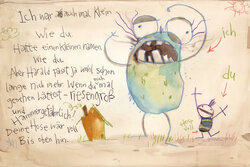 Ich war auch mal klein
wie du
Hatte einen kleinen namen
wie du.
Aber Harald passt ja wohl schon
lange nich mehr. Wenn du mal
gesehen hättest - riesengroß
Deine Hose war voll
Bis oben hin
ich
du